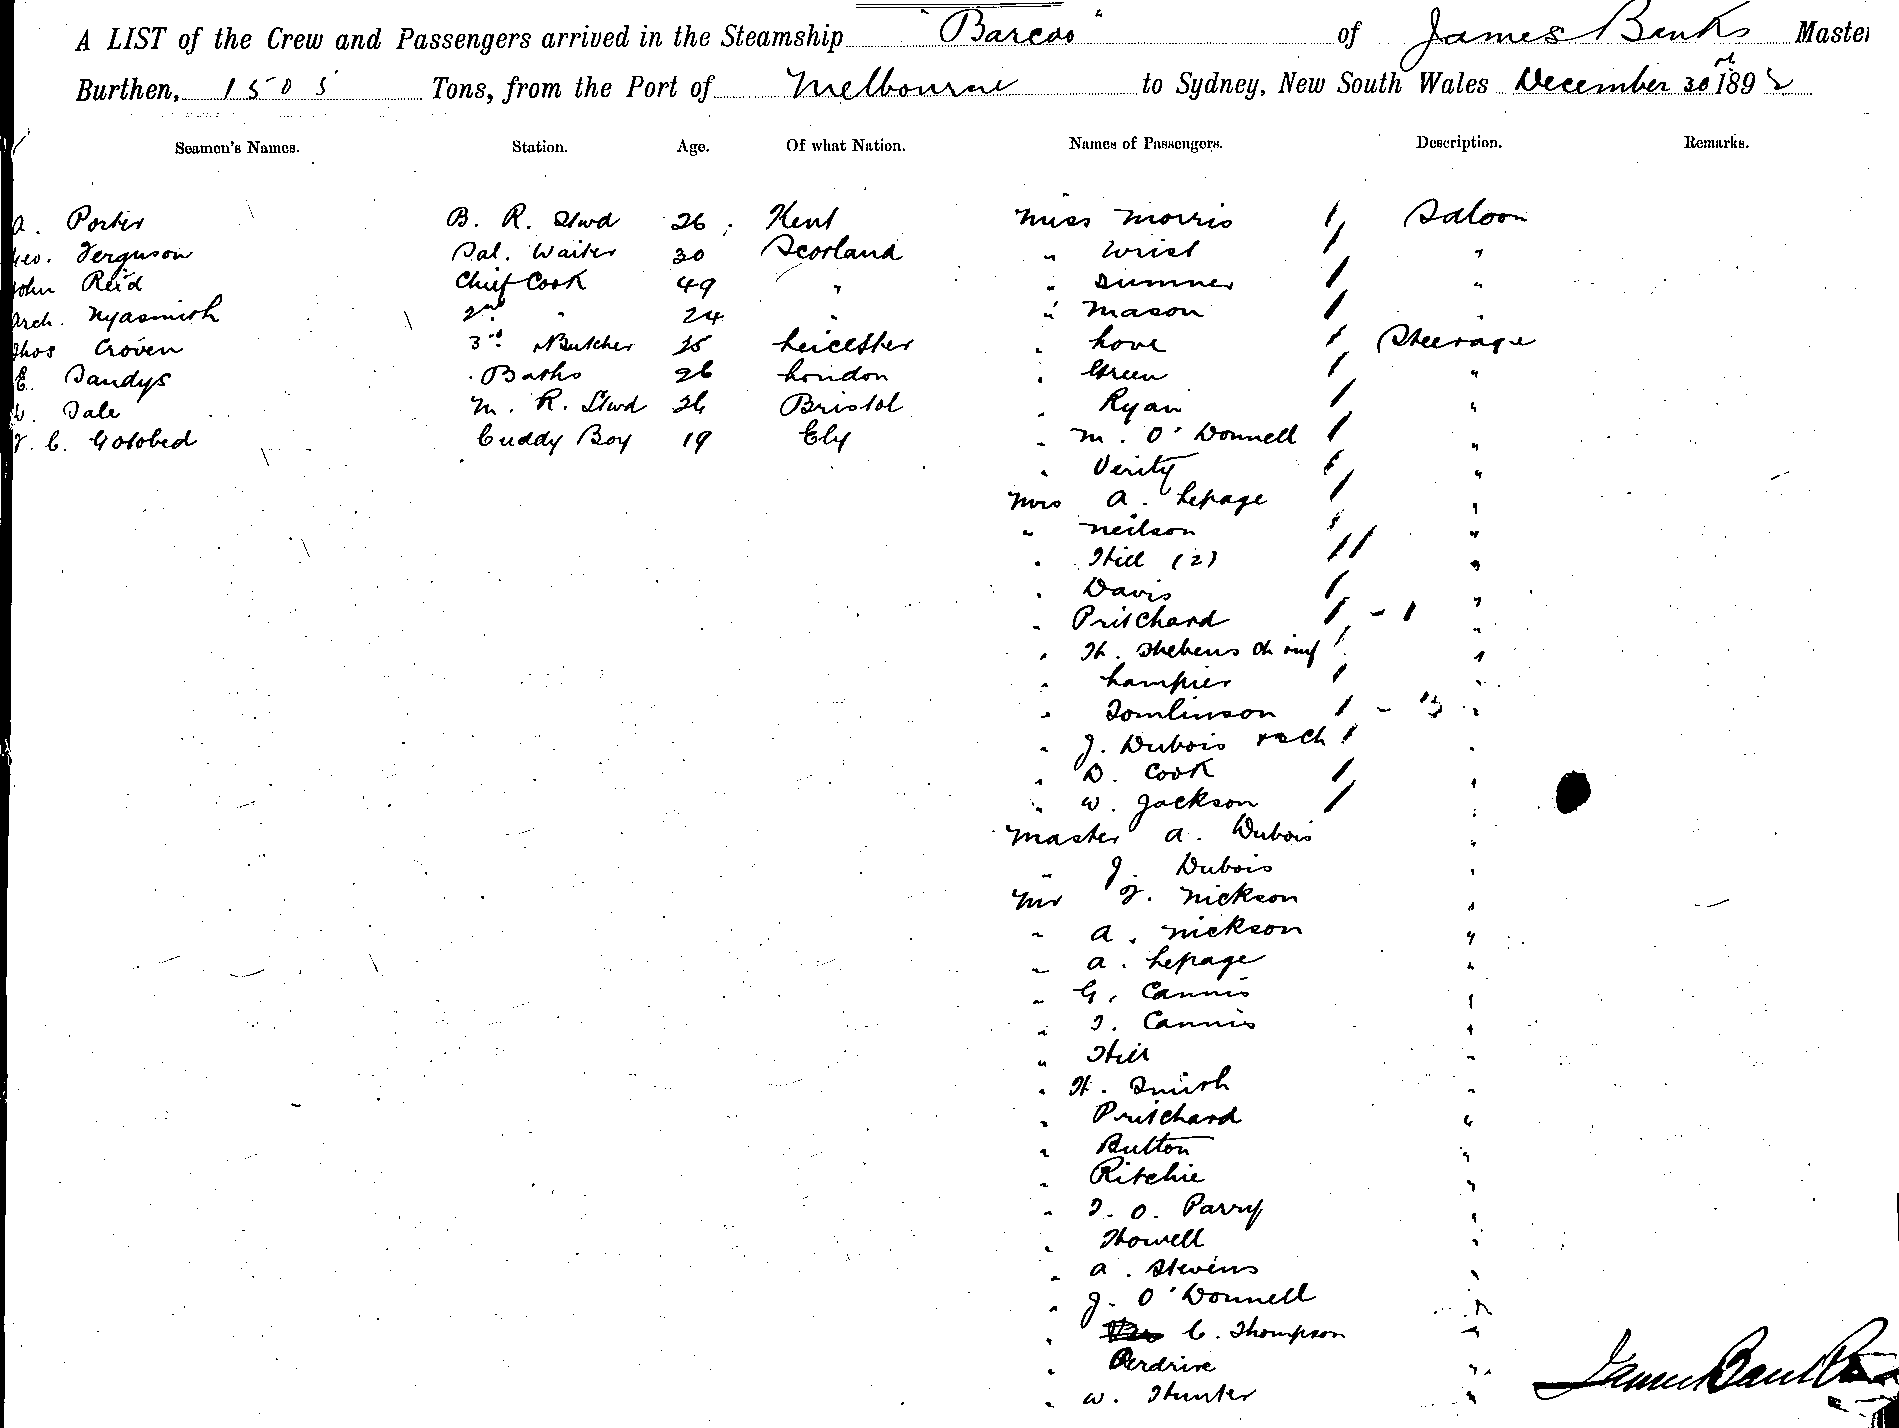 A LIST of the Crew and Passengers arrived in the Steamship "Barcoo" of James Banks Master
Burthen, 1505 Tons, from the Port of Melbourne to Sydney, New South Wales December 30th 1892
Seamen's Names. Station. Age. Of what Nation. Names of Passengers. Description. Remarks.
A. Porter B. R. Stwd 26 Kent Miss Morris 1 Saloon
Geo. Ferguson Sal. Waiter 30 Scotland " Wrist 1 "
John Reid Chief Cook 49 " " Sumner 1 "
Arch. Nyasmith 2nd " 24 " " Mason 1
Thos Croven 3rd & Butcher 25 Leicester " Love 1 Steerage
E. Sandys Baths 26 London " Green 1 "
Dale M. R. Stwd 26 Bristol " Ryan 1 "
C. Gotobed Cuddy Boy 19 Ely " M. O'Donnell 1 "
" Verity 1 "
Mrs A. Lepage 1 "
" Neilson 1 "
" Hill (2) 11 "
" Davis 1 "
" Pritchard 1 - 1 "
" H. Stebens & inf 1 "
" Lampier 1 "
" Tomlinson 1 - "
" J. Dubois & ch 1 "
" D. Cook 1 "
" W. Jackson 1 "
Master A. Dubois "
" J. Dubois "
Mr F. Nickson "
" A. Nickson "
" A. Lepage "
" G. Cannis "
" T. Cannis "
" Hill "
" H. Smith "
" Pritchard "
" Button "
" Ritchie "
" T. O. Parry "
" Howell "
" A. Stevens "
" J. O'Donnell "
" C. Thompson "
" Perdrix "
" W. Hunter "
James Banks